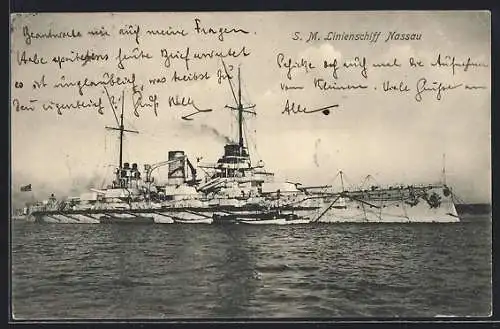 S. M. Linienschiff Nassau
Beantworte mir auch meine Fragen.
Habe spätestens heute Brief erwartet
es ist unglaublich was treibst
Du eigentlich? Gruß Willy
Schicke doch auch mal die Aufnahme
vom Kleinen. Viele Grüße an
Alle